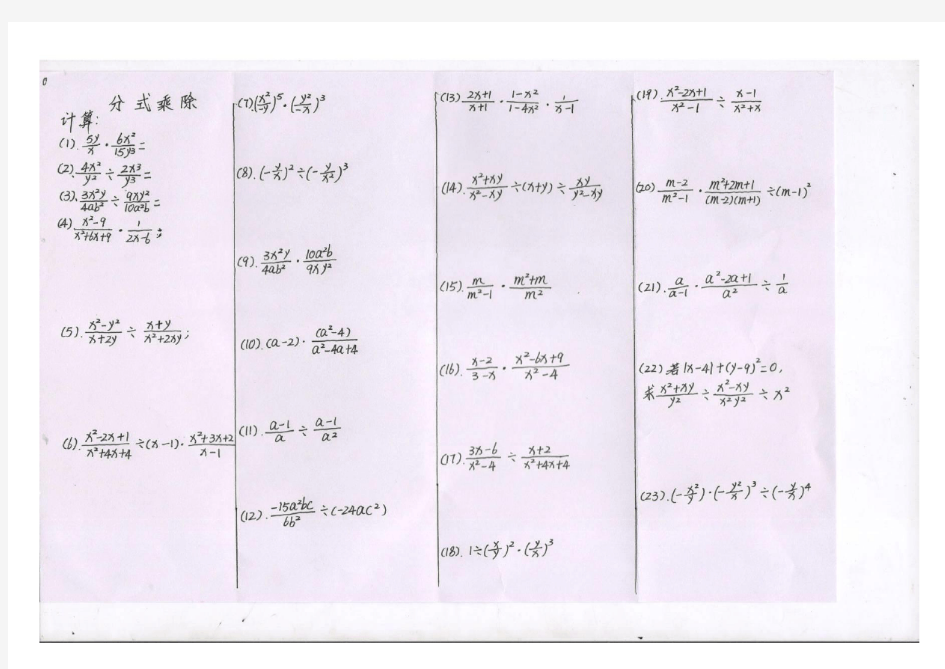 分式乘除
计算:
(1). 5y/x · 6x²/15y³ =
(2). 4x²/y² ÷ 2x³/y³ =
(3). 3x²y/4ab² ÷ 9xy²/10a²b =
(4). x²-9/x²+6x+9 · 1/2x-6 ;
(5). x²-y²/x+2y ÷ x+y/x²+2xy ;
(6). x²-2x+1/x²+4x+4 ÷(x-1)· x²+3x+2/x-1
(7). (x²/-y)⁵ · (y²/-x)³
(8). (-y/x)² ÷ (-y/x²)³
(9). 3x²y/4ab² · 10a²b/9xy²
(10). (a-2) · (a²-4)/a²-4a+4
(11). a-1/a ÷ a-1/a²
(12). -15a²bc/6b² ÷(-24ac²)
(13). 2x+1/x+1 · 1-x²/1-4x² · 1/x-1
(14). x²+xy/x²-xy ÷(x+y)÷ xy/y²-xy
(15). m/m²-1 · m²+m/m²
(16). x-2/3-x · x²-6x+9/x²-4
(17). 3x-6/x²-4 ÷ x+2/x²+4x+4
(18). 1÷(x/y)²·(y/x)³
(19). x²-2x+1/x²-1 ÷ x-1/x²+x
(20). m-2/m²-1 · m²+2m+1/(m-2)(m+1) ÷(m-1)²
(21). a/a-1 · a²-2a+1/a² ÷ 1/a
(22) 若|x-4|+(y-9)²=0,
求 x²+xy/y² ÷ x²-xy/x²y² ÷ x²
(23). (-x²/y)·(-y²/x)³÷(-y/x)⁴